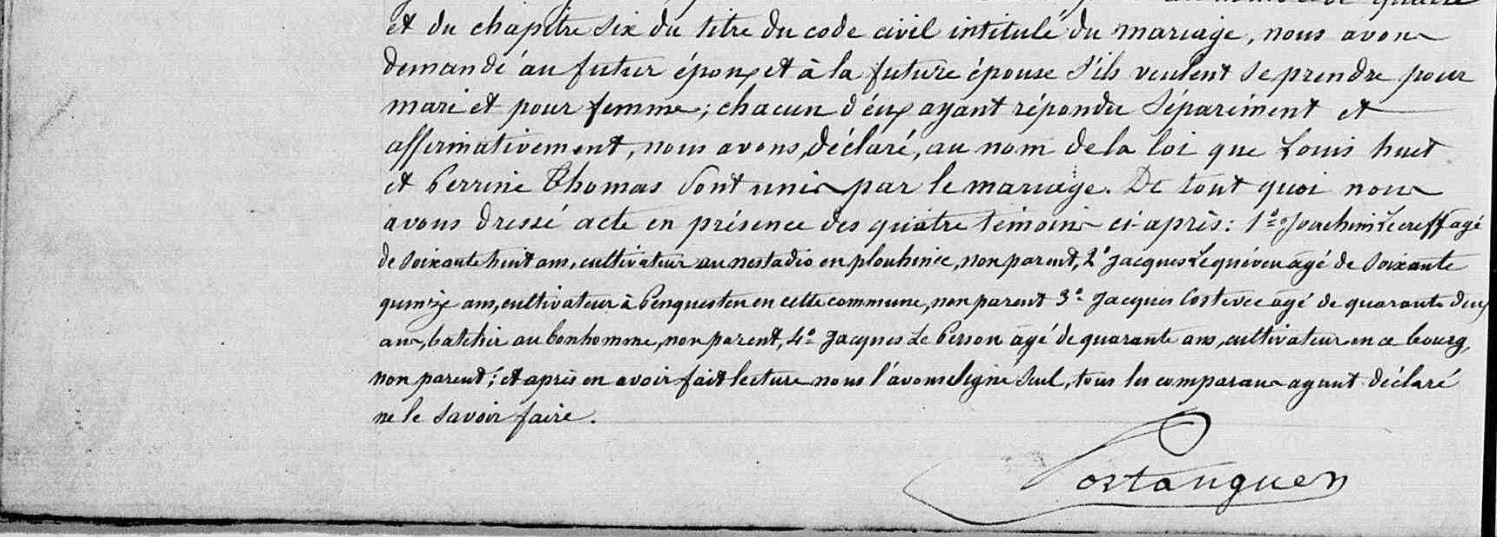 et du chapitre six du titre du code civil intitulé du mariage, nous avons
demandé au futur époux et à la future épouse s'ils veulent se prendre pour
mari et pour femme; chacun d'eux ayant répondu séparément et
affirmativement, nous avons déclaré, au nom de la loi que Louis huet
et Perrine Thomas sont unis par le mariage. De tout quoi nous
avons dressé acte en présence des quatre témoins ci-après: 1º Joachim Le creff agé
de soixante huit ans, cultivateur au nestadio en plouhinec, non parent, 2º Jacques Le quéven agé de soixante
quinze ans, cultivateur à Penquesten en cette commune, non parent 3º Jacques Costevec agé de quarante deux
ans, batelier au bonhomme, non parent, 4º Jacques Le Person agé de quarante ans, cultivateur en ce bourg,
non parent; et après en avoir fait lecture nous l'avons signé seul, tous les comparans ayant déclaré
ne le savoir faire.
Postanguen